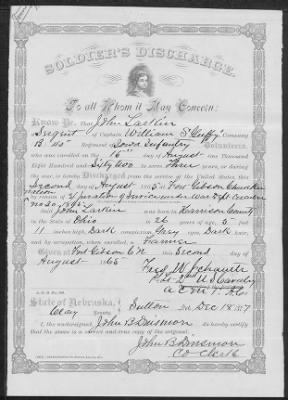 SOLDIER'S DISCHARGE.
To all Whom it May Concern:
Know Ye, That John Larkin
of Captain William S. Company
B 40" Regiment Iowa Infantry Volunteers,
who was enrolled on the 15" day of August one Thousand
Eight Hundred and Sixty two to serve Three years or during
the war, is hereby Discharged from the service of the United States, this
Second day of August 1865 at Fort Gibson Cherokee
Nation by reason of
Said John Larkin was born in Harrison County
in the State of Ohio is 26 years of age 5 feet
11 inches high, Dark complexion Grey eyes, Dark hair,
and by occupation, when enrolled, a Farmer
Given at Fort Gibson C.N. this Second day of
August 1865
State of Nebraska,
Clay County
Sutton Dec 18 1887
I, the undersigned, John B Dinsmore do hereby certify
that the above is a correct and true copy of the original.
John B Dinsmore
Co Clerk